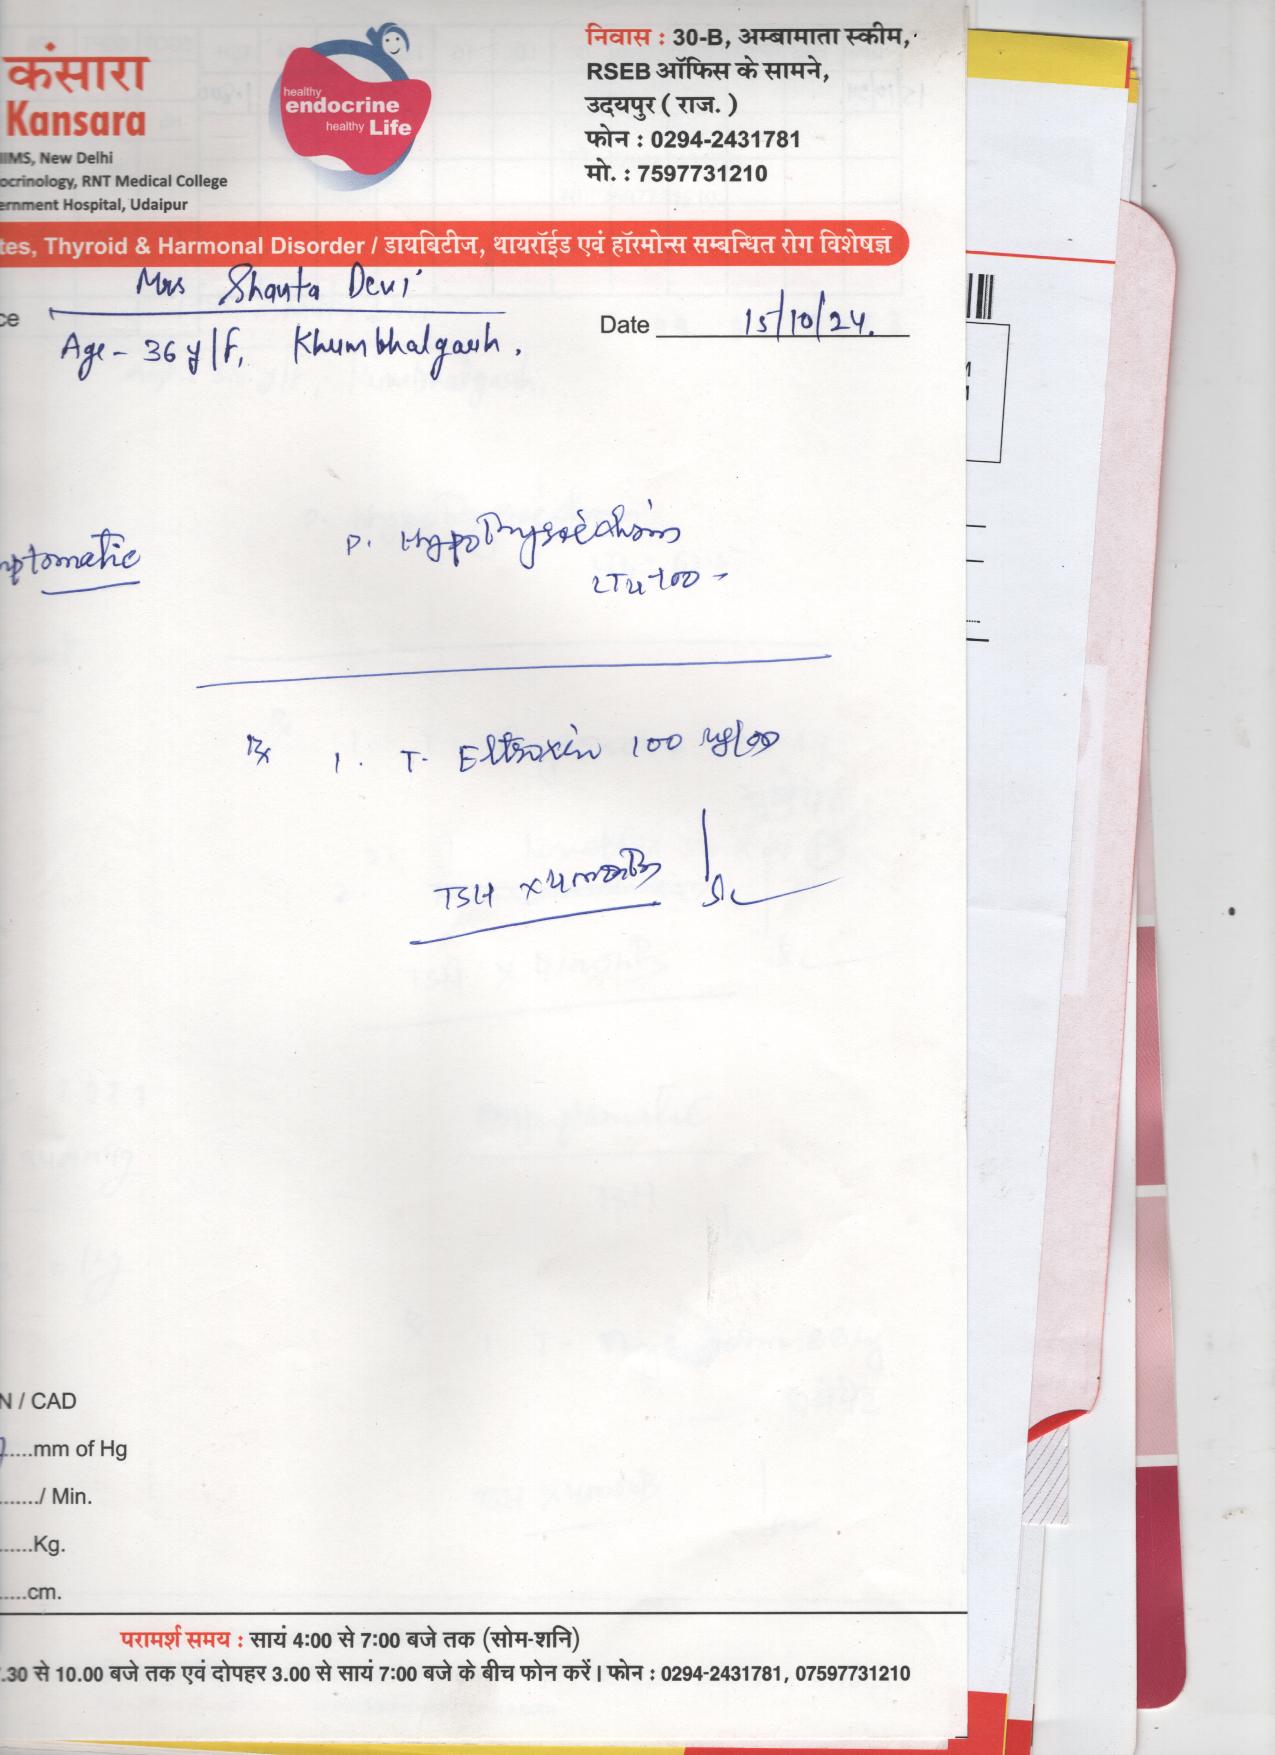 कंसारा
Kansara
IIMS, New Delhi
ocrinology, RNT Medical College
ernment Hospital, Udaipur
healthy
endocrine
healthy Life
निवास : 30-B, अम्बामाता स्कीम,
RSEB ऑफिस के सामने,
उदयपुर ( राज. )
फोन : 0294-2431781
मो. : 7597731210
tes, Thyroid & Harmonal Disorder / डायबिटीज, थायरॉईड एवं हॉरमोन्स सम्बन्धित रोग विशेषज्ञ
Mrs Shanta Devi
ce
Date 15/10/24.
Age - 36 y/F, Khumbhalgarh.
mptomatic
P. Hypothyroidism
LT4 100
Rx 1. T. Eltroxin 100 ug/OD
TSH x 4 months
N / CAD
.....mm of Hg
......./ Min.
......Kg.
.....cm.
परामर्श समय : सायं 4:00 से 7:00 बजे तक (सोम-शनि)
.30 से 10.00 बजे तक एवं दोपहर 3.00 से सायं 7:00 बजे के बीच फोन करें। फोन : 0294-2431781, 07597731210